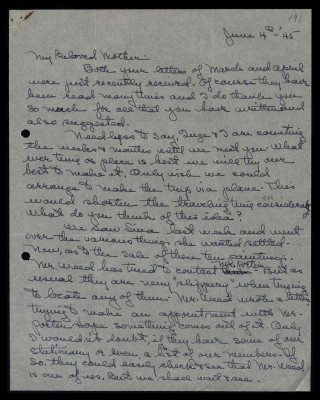 June 4th - 45
My Beloved Mother -
Both your letters of March and April
were just recently received. Of course they have
been read many times and I do thank you
so much for all that you have written and
also suggested.
Needless to say, Suge & I are counting
the weeks & months until we meet you. What
ever time or place is best we will try our
best to make it. Only wish we could
arrange to make the trip via plane. This
would shorten the traveling time considerably
What do you think of this idea?
We saw Sima last week and went
over the various things she wanted settled -
Now, as to the sale of those ten paintings.
Mr. Weed has tried to contact Mrs. Porter But as
usual they are very "slippery" when trying
to locate any of them. Mr. Weed wrote a letter
trying to make an appointment with Mr.
Porter. Hope something comes out of it. Only
I wouldn't doubt, if they have some of our
stationary or even a list of our members - If
so, they could easily check & see that Mr. Weed
is one of us. But we shall wait & see.